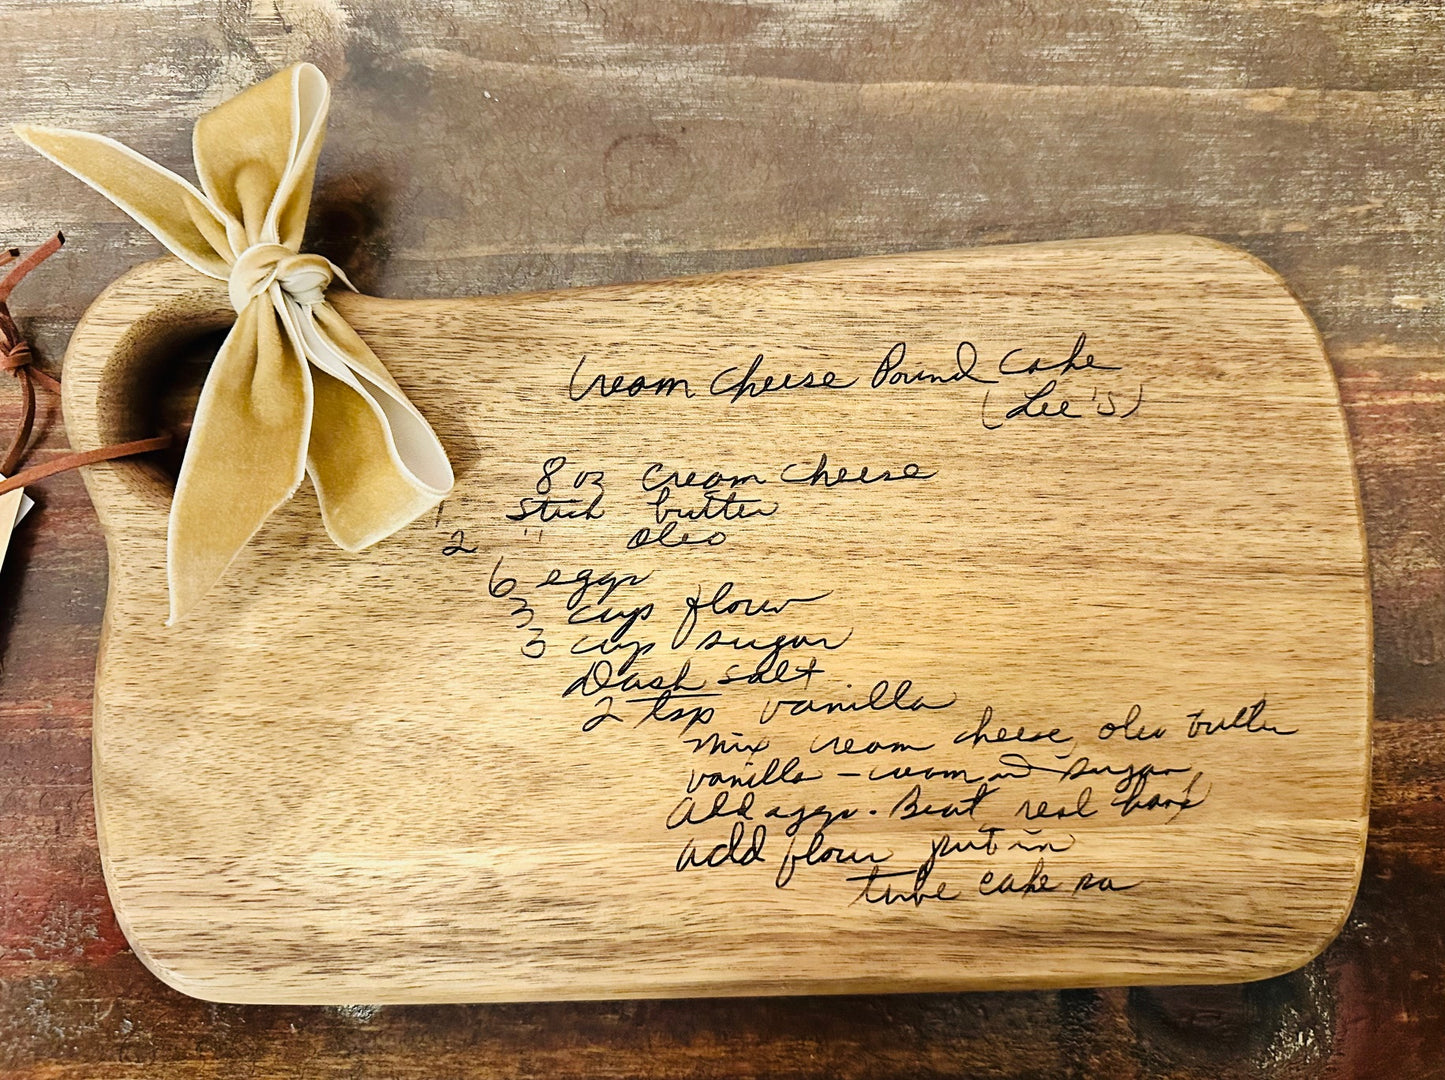 Cream Cheese Pound Cake
(Lee's)
8 oz cream cheese
1 stick butter
2 " oleo
6 eggs
3 cup flour
3 cup sugar
Dash salt
2 tsp vanilla
Mix cream cheese, oleo butter
vanilla - cream and sugar
Add eggs. Beat real hard
add flour put in
tube cake pa